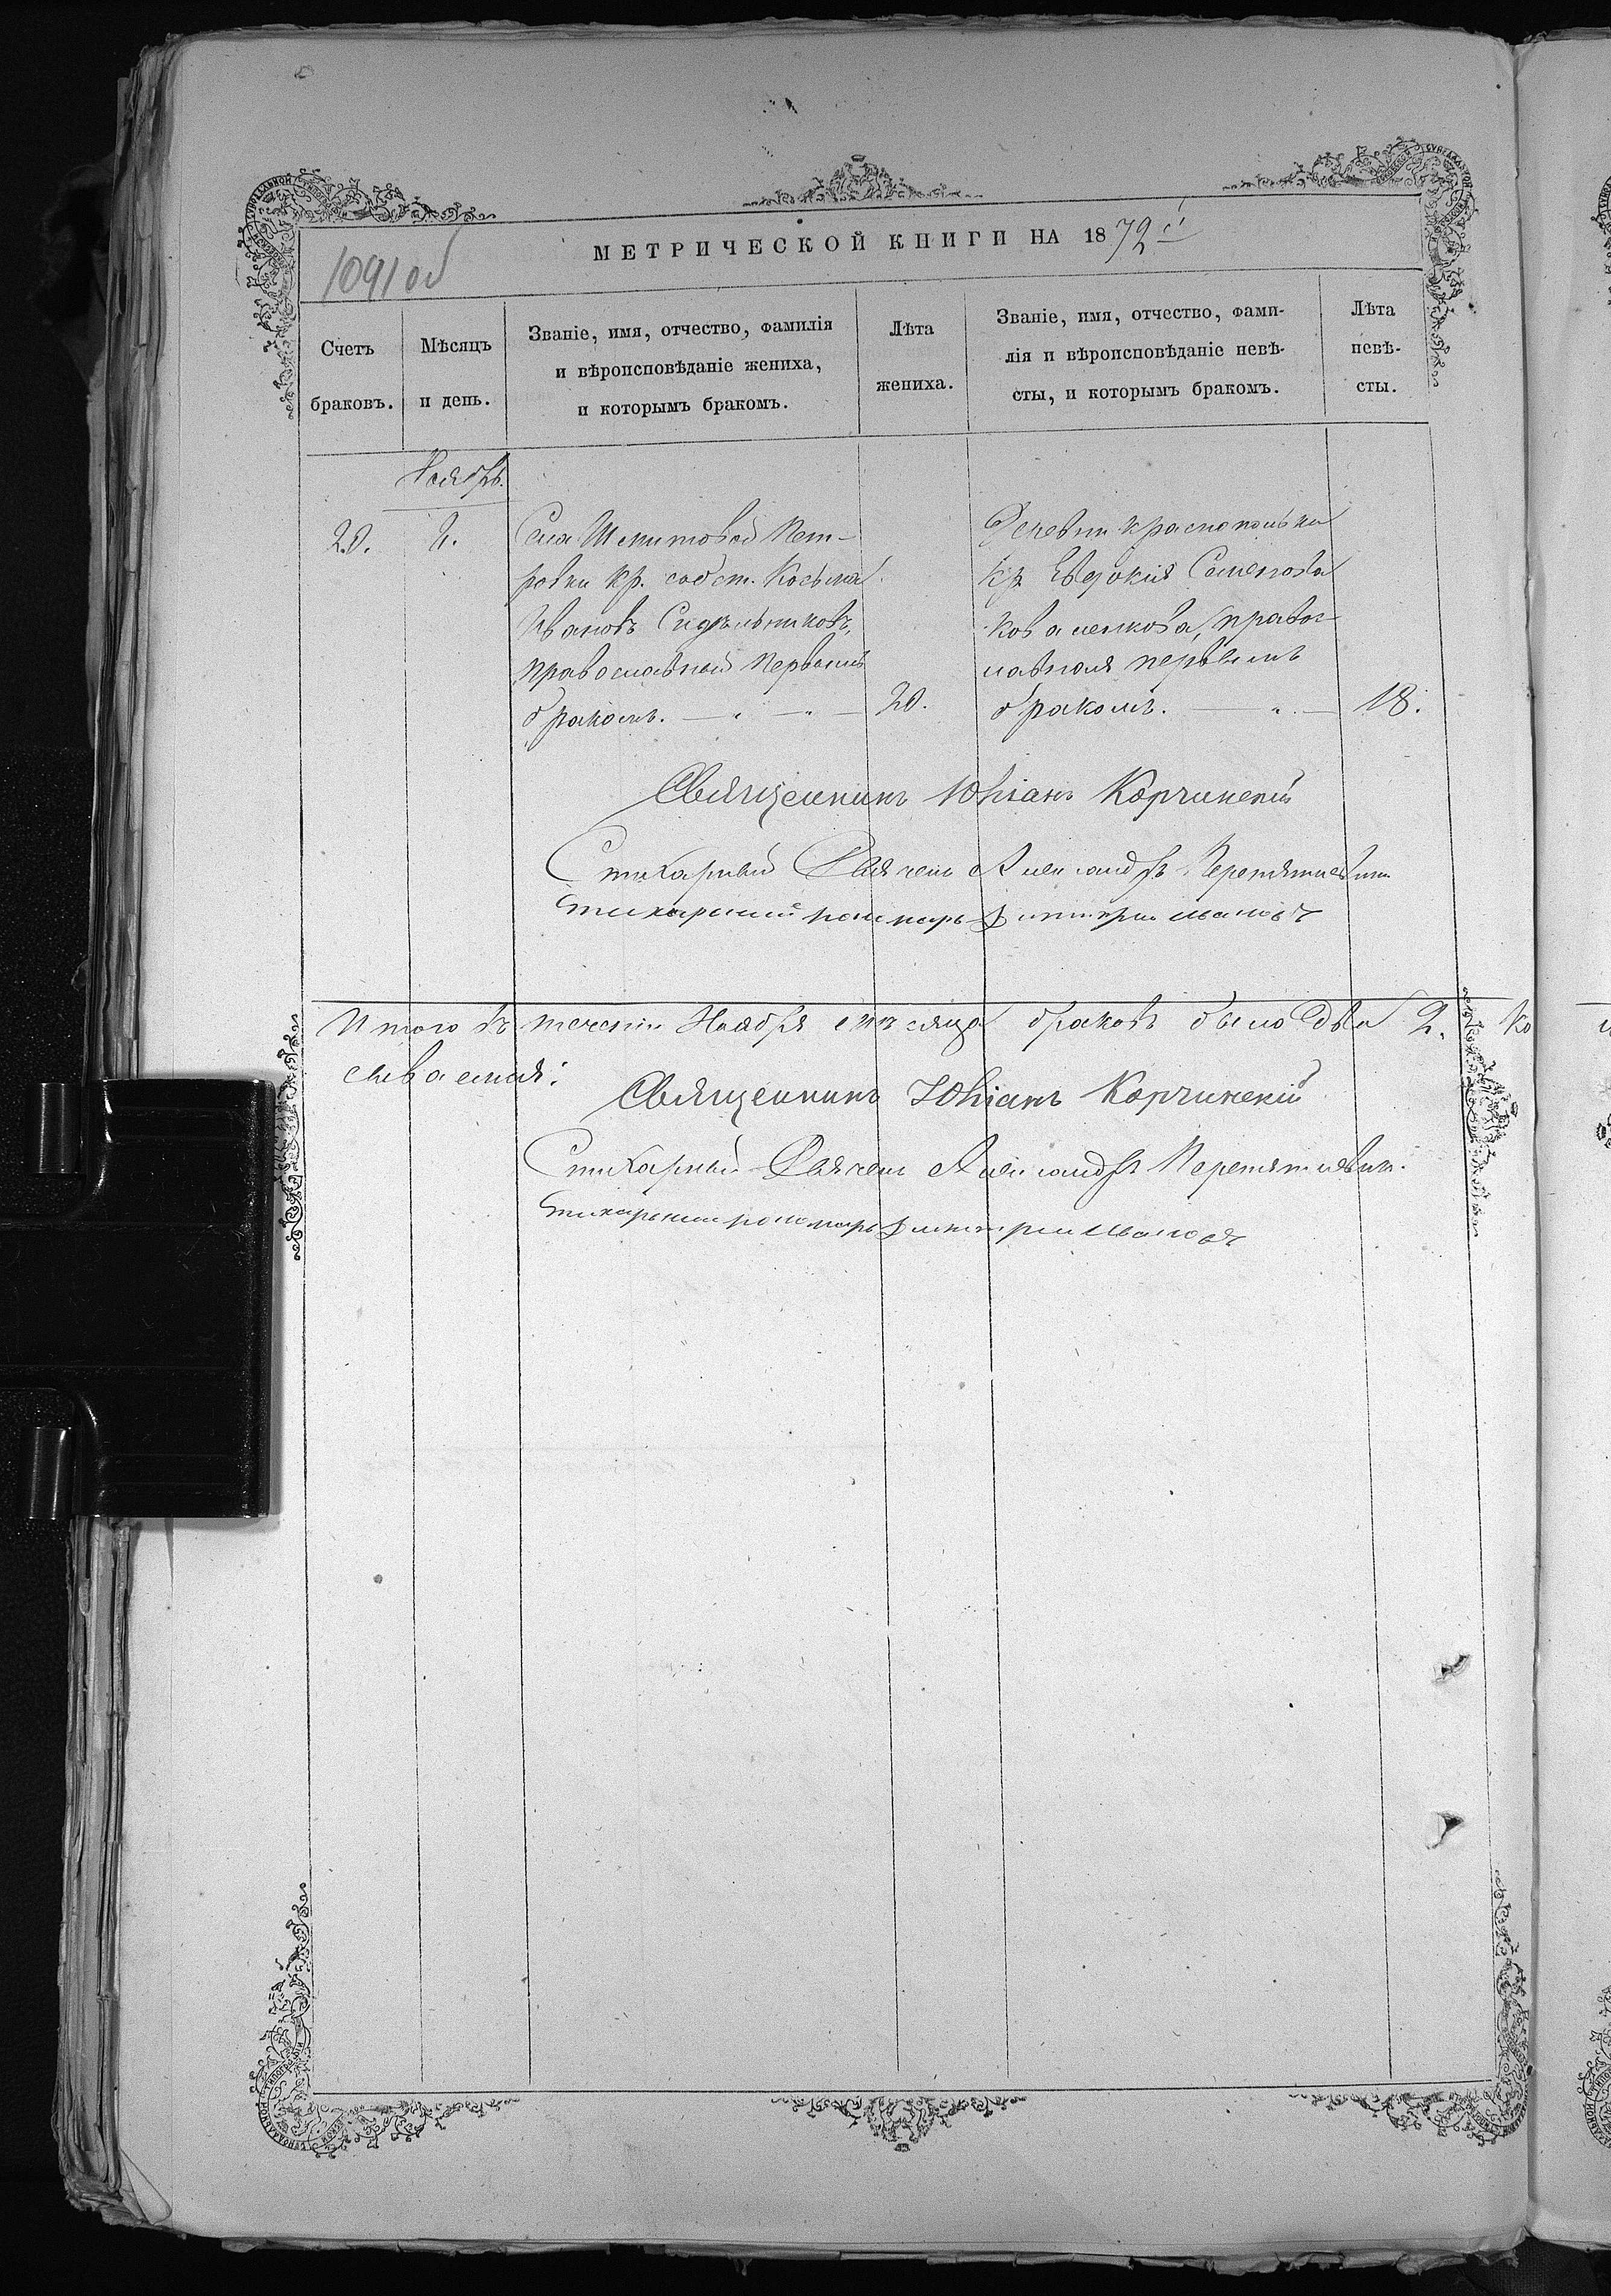 1091об
МЕТРИЧЕСКОЙ КНИГИ НА 1872й
Счетъ браковъ.
Мѣсяцъ и день.
Званіе, имя, отчество, фамилія
и вѣроисповѣданіе жениха,
и которымъ бракомъ.
Лѣта жениха.
Званіе, имя, отчество, фами-
лія и вѣроисповѣданіе невѣ-
сты, и которымъ бракомъ.
Лѣта невѣ-
сты.
Ноябрь.
20.
Села Шемитовой Пет-
ровки кр. собст. Косьма
Ивановъ Сидѣльниковъ,
православный первымъ
бракомъ. — „ — „ — 20.
Деревни Краснополья
кр. Евдокія Семенова
Коваленкова, правос-
лавная первымъ
бракомъ. — „ — 18.
Священникъ Юліанъ Корчинскій
Стихарный Дьячекъ Александръ Перетятковичъ
Стихарный пономарь Димитрій Ивановъ
Итого въ теченіи Ноября мѣсяца браковъ было два 2. Ко
Священникъ Юліанъ Корчинскій
Стихарный Дьячекъ Александръ Перетятковичъ.
Стихарный пономарь Димитрій Ивановъ